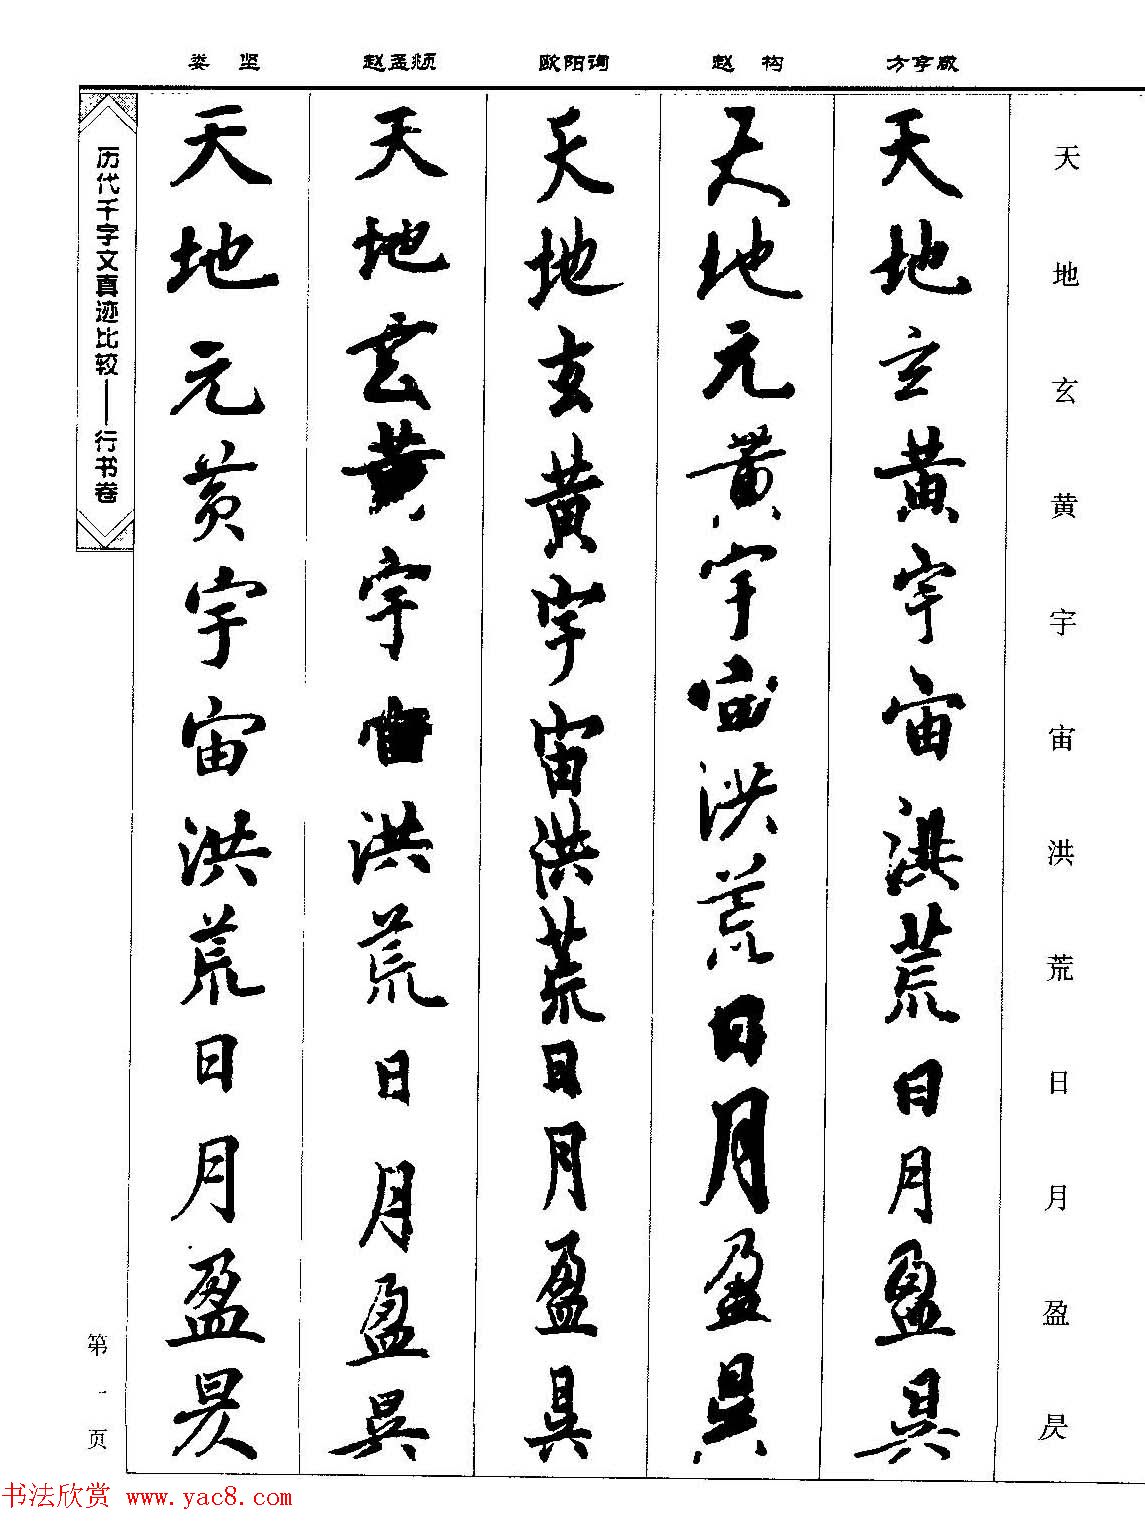 娄坚 赵孟頫 欧阳询 赵构 方亨咸
天地玄黄宇宙洪荒日月盈昃
天地玄黄宇宙洪荒日月盈昃
天地元黄宇宙洪荒日月盈昃
天地玄黄宇宙洪荒日月盈昃
天地雲黄宇宙洪荒日月盈昃
天地元黄宇宙洪荒日月盈昃
历代千字文真迹比较——行书卷
第一页
书法欣赏 www.yac8.com